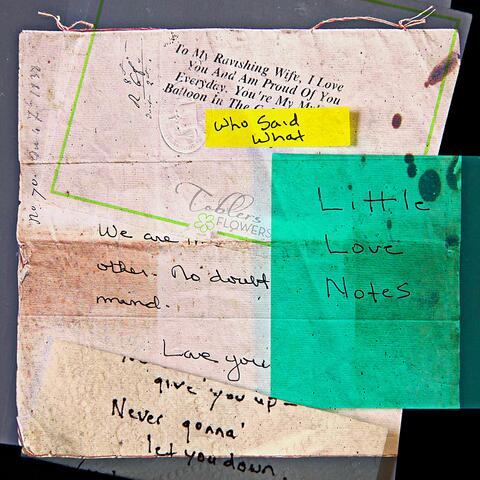 To My Ravishing Wife, I Love
You And Am Proud Of You
Everyday. You're My
Balloon In The
Who Said
What
Toblers
FLOWERS
Little
Love
Notes
We are
other. No doubt
mind.
Love you
give you up
Never gonna'
let you down.